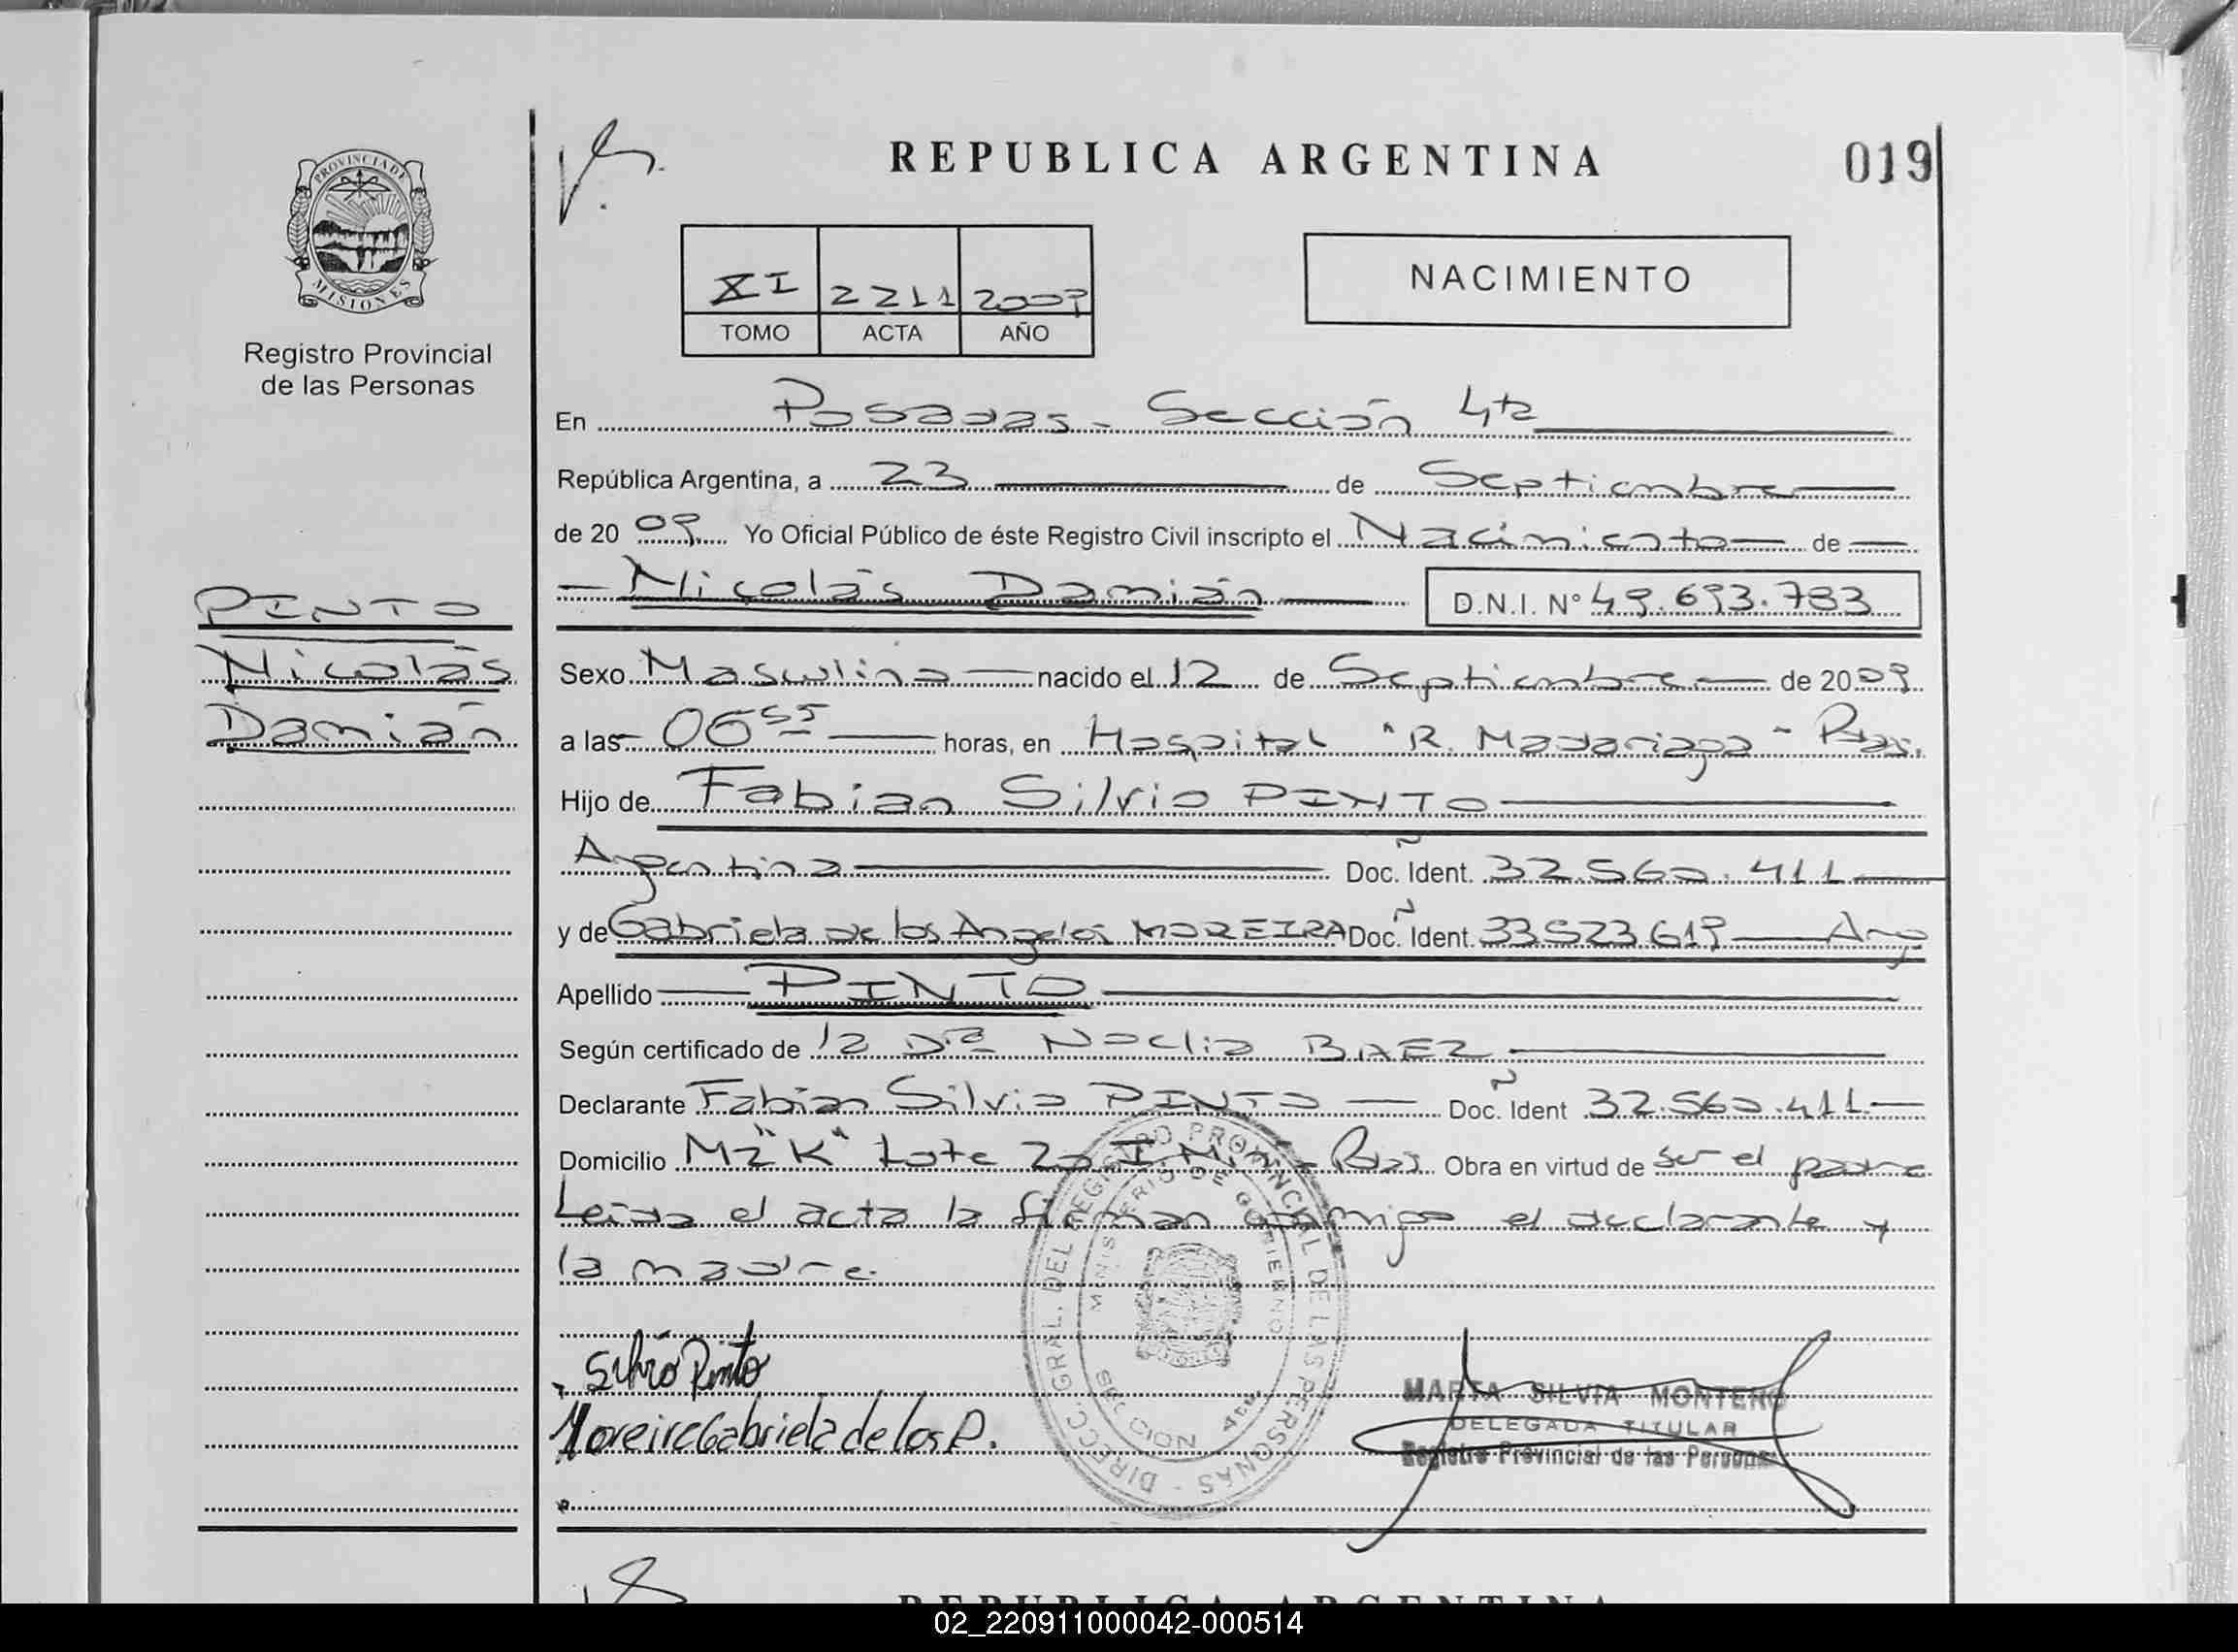 REPUBLICA ARGENTINA
019
PROVINCIA DE MISIONES
Registro Provincial
de las Personas
XI 2211 2009
TOMO ACTA AÑO
NACIMIENTO
En Posadas - Sección 4ta
República Argentina, a 23 de Septiembre
de 2009 Yo Oficial Público de éste Registro Civil inscripto el Nacimiento de
Nicolás Damián D.N.I. Nº 49.693.783
PINTO
Nicolás
Damián
Sexo Masculino nacido el 12 de Septiembre de 2009
a las 06 55 horas, en Hospital "R. Madariaga" Pdas.
Hijo de Fabian Silvio PINTO
Argentina Doc. Ident. 32.560.411
y de Gabriela de los Angeles MOREIRA Doc. Ident. 33.523.619 Arg
Apellido PINTO
Según certificado de la Dra Noelia BAEZ
Declarante Fabian Silvio PINTO Doc. Ident 32.560.411
Domicilio Mz "K" Lote 20 Pdas Obra en virtud de ser el padre
Leída el acta la firman conmigo el declarante y
la madre.
DIRECC. GRAL. DEL REGISTRO PROVINCIAL DE LAS PERSONAS
MINISTERIO DE GOBIERNO
Silvio Pinto
Moreira Gabriela de los A.
MARTA SILVIA MONTENG
DELEGADA TITULAR
Registro Provincial de las Personas
REPUBLICA ARGENTINA
02_220911000042-000514